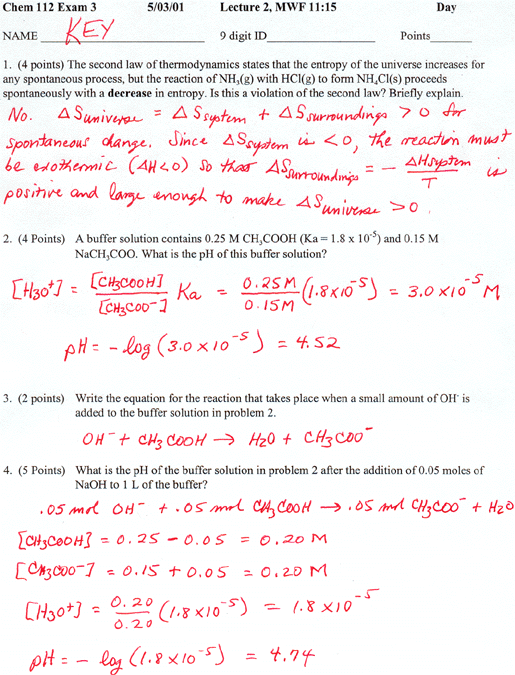 Chem 112 Exam 3 5/03/01 Lecture 2, MWF 11:15 Day
NAME KEY 9 digit ID Points
1. (4 points) The second law of thermodynamics states that the entropy of the universe increases for
any spontaneous process, but the reaction of NH₃(g) with HCl(g) to form NH₄Cl(s) proceeds
spontaneously with a decrease in entropy. Is this a violation of the second law? Briefly explain.
No. ΔSuniverse = ΔSsystem + ΔSsurroundings > 0 for
spontaneous change. Since ΔSsystem is < 0, the reaction must
be exothermic (ΔH<0) so that ΔSsurroundings = - ΔHsystem/T is
positive and large enough to make ΔSuniverse > 0.
2. (4 Points) A buffer solution contains 0.25 M CH₃COOH (Ka = 1.8 x 10⁻⁵) and 0.15 M
NaCH₃COO. What is the pH of this buffer solution?
[H3O⁺] = [CH3COOH]/[CH3COO⁻] Ka = 0.25M/0.15M (1.8x10⁻⁵) = 3.0x10⁻⁵ M
pH = - log (3.0 x 10⁻⁵) = 4.52
3. (2 points) Write the equation for the reaction that takes place when a small amount of OH⁻ is
added to the buffer solution in problem 2.
OH⁻ + CH3COOH → H2O + CH3COO⁻
4. (5 Points) What is the pH of the buffer solution in problem 2 after the addition of 0.05 moles of
NaOH to 1 L of the buffer?
.05 mol OH⁻ + .05 mol CH3COOH → .05 mol CH3COO⁻ + H2O
[CH3COOH] = 0.25 - 0.05 = 0.20 M
[CH3COO⁻] = 0.15 + 0.05 = 0.20 M
[H3O⁺] = 0.20/0.20 (1.8x10⁻⁵) = 1.8 x10⁻⁵
pH = - log (1.8 x10⁻⁵) = 4.74